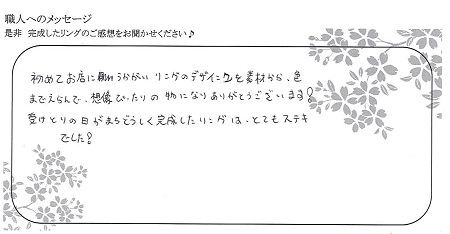 職人へのメッセージ
是非 完成したリングのご感想をお聞かせください♪
初めてお店にうかがい リングのデザインを素材から、色
までえらんで、想像ぴったりの物になりありがとうございます!
受けとりの日がまちどうしく完成したリングは、とてもステキ
でした!